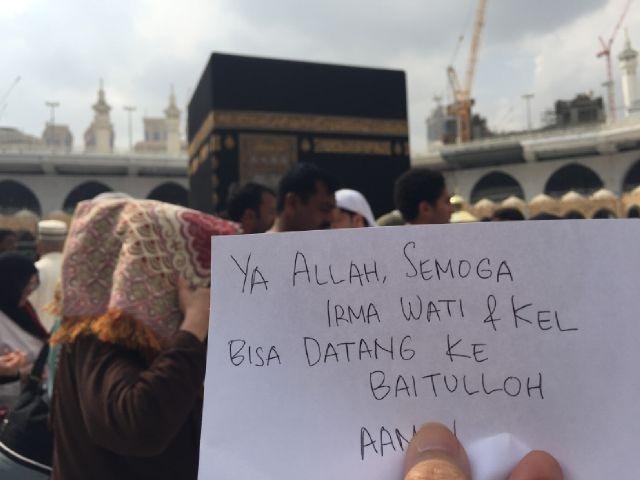 YA ALLAH, SEMOGA
IRMA WATI & KEL
BISA DATANG KE
BAITULLOH